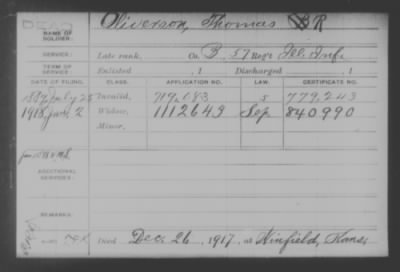 DEAD
NAME OF SOLDIER: Oliverson, Thomas
SERVICE: Late rank, Co. B, 57 Reg't Ill. Inf.
TERM OF SERVICE: Enlisted , 1 Discharged , 1
DATE OF FILING. CLASS. APPLICATION NO. LAW. CERTIFICATE NO.
1889 July 25 Invalid, 719,083 779,243
1918 Jan 2 Widow, 1112643 Sep 840,990
Minor,
ADDITIONAL SERVICES:
REMARKS:
Died Dec. 26, 1917, at Winfield, Kans.